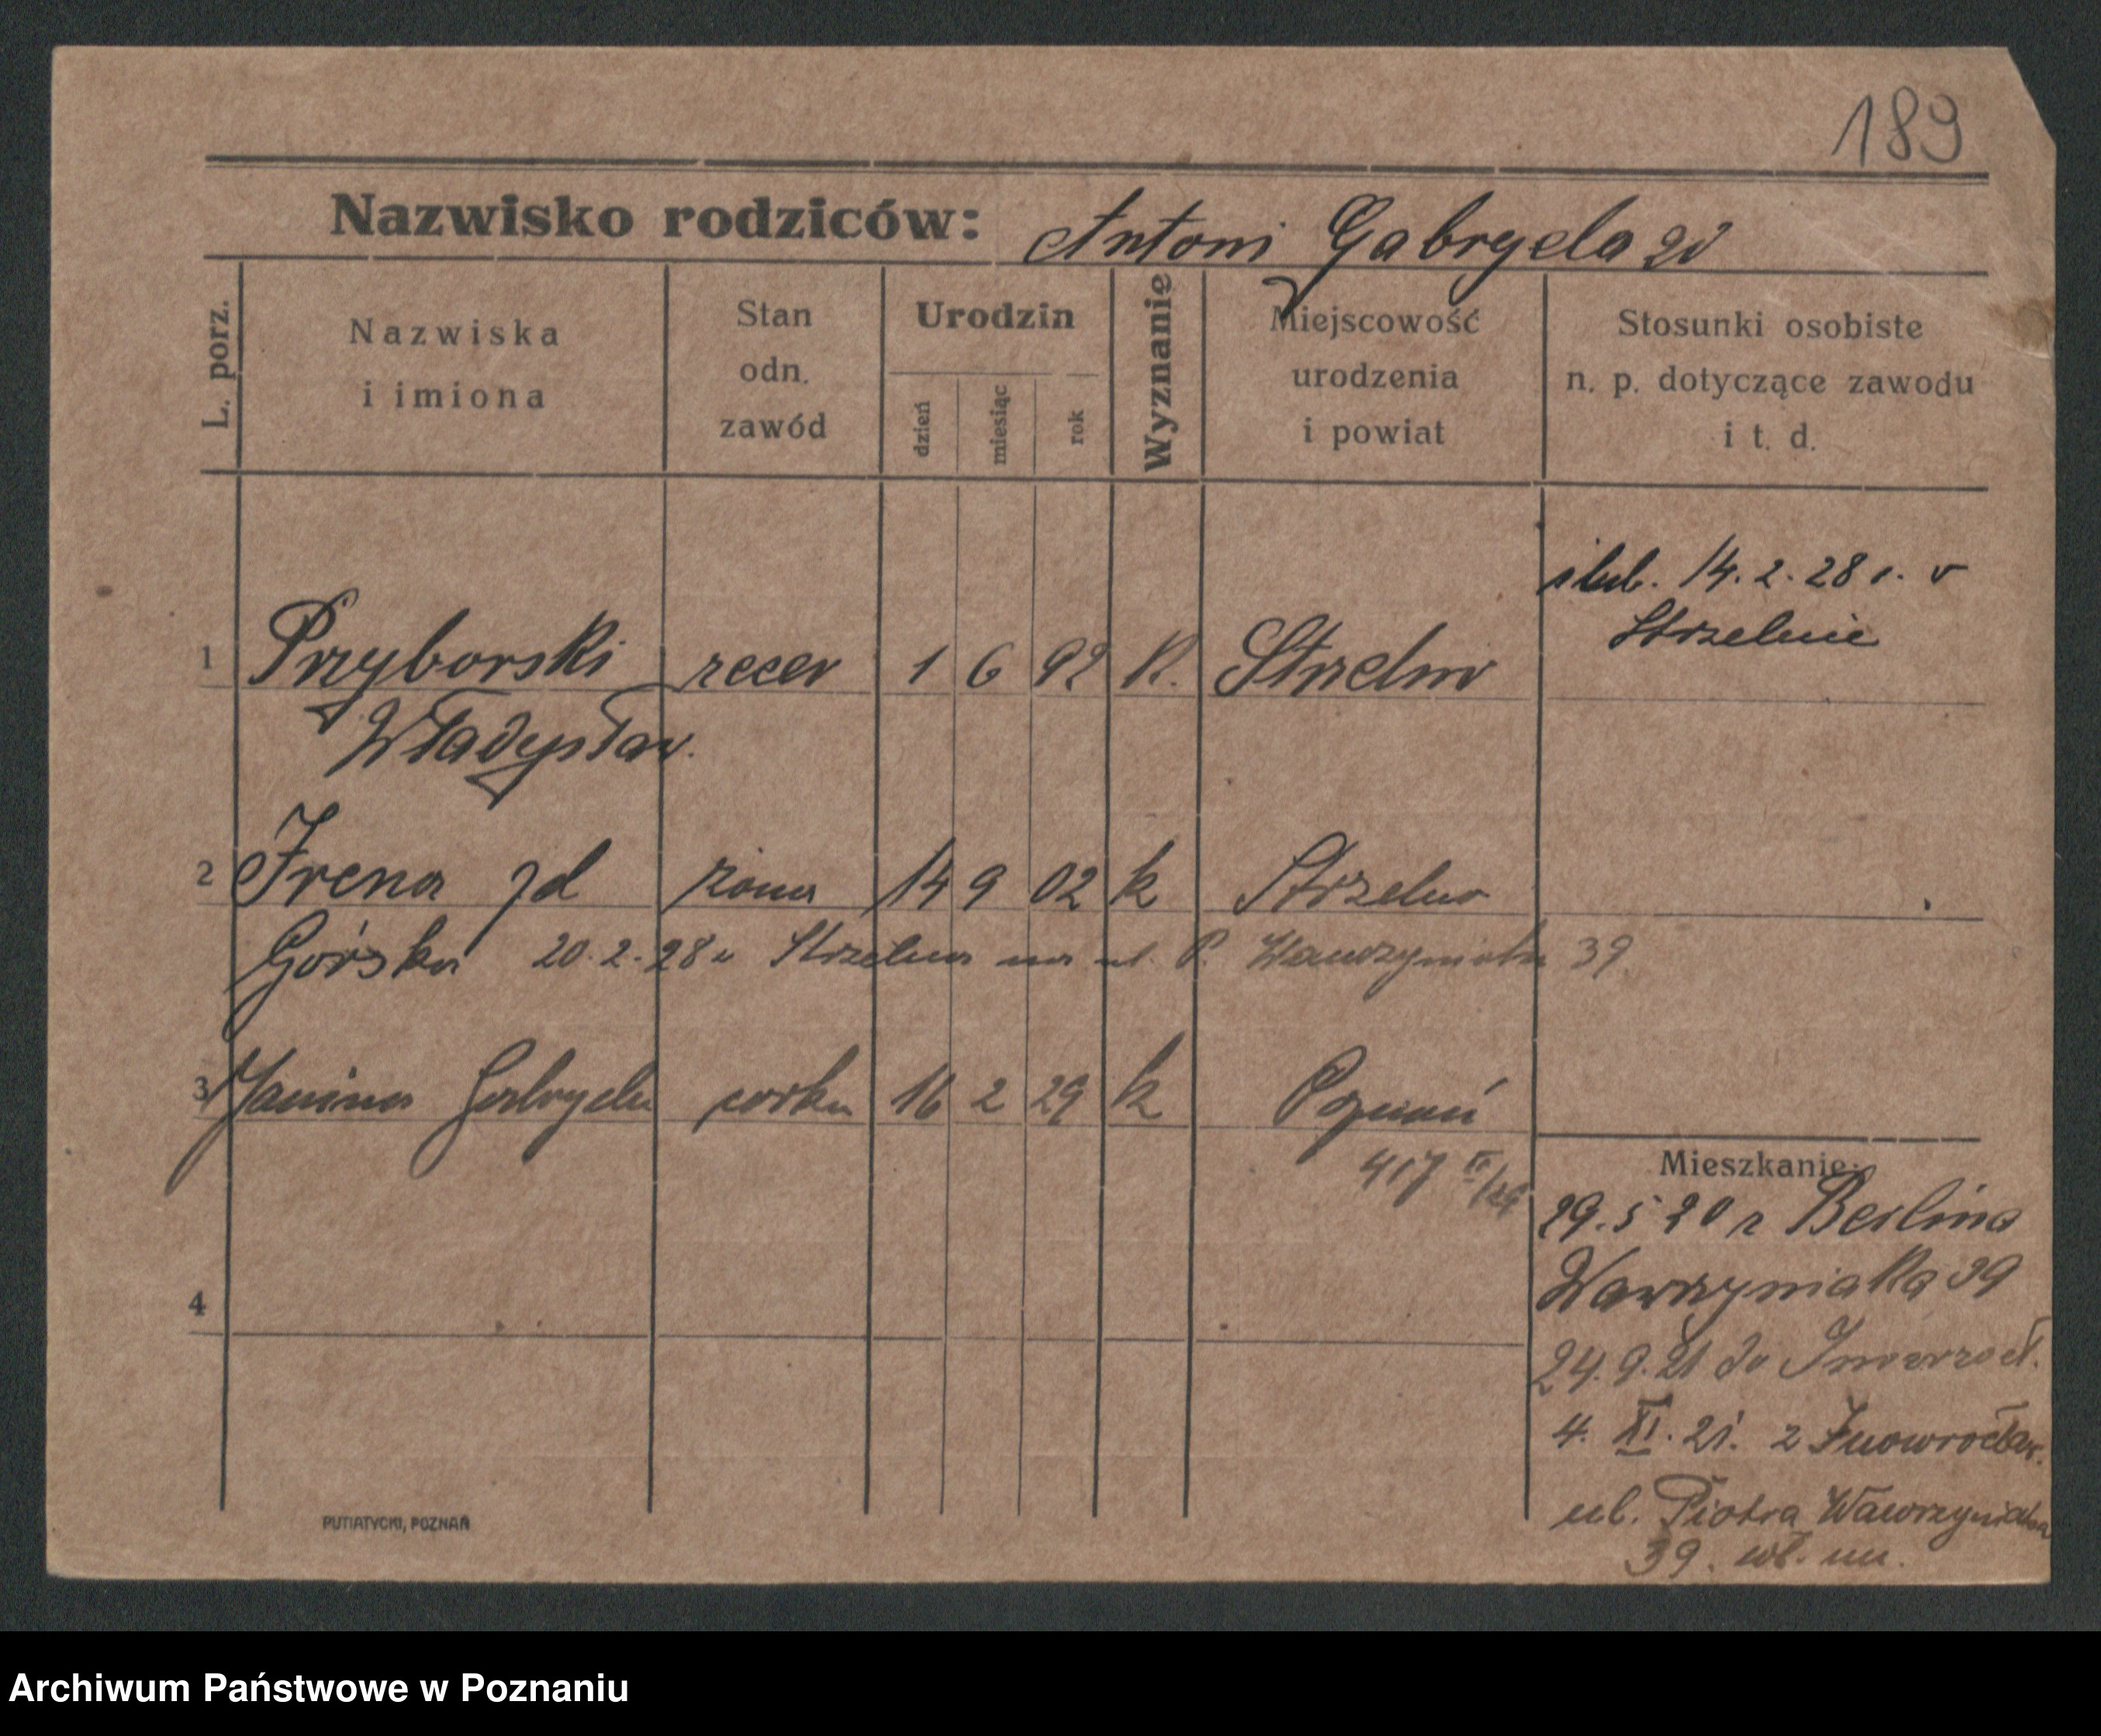 189
Nazwisko rodziców: Antoni Gabryela
L. porz.
Nazwiska
i imiona
Stan
odn.
zawód
Urodzin
dzień
miesiąc
rok
Wyznanie
Miejscowość
urodzenia
i powiat
Stosunki osobiste
n. p. dotyczące zawodu
i t. d.
ślub. 14. 2. 28 r. v
Strzelnie
1 Przyborski zecer 1 6 92 K. Strzelno
Władysław.
2 Irena żona 14 9 02 k Strzelno
Górska 20. 2. 28 Strzelna na ul. P. Wawrzyniaka 39
3 Janina Gabryela córka 16 2 29 k Poznań
417
Mieszkanie:
29. 5 20 z Berlina
Wawrzyniaka 39
24. 9. 21 do Inowrocł.
4. XI. 21. z Inowrocław.
ul. Piotra Wawrzyniaka
39.
4
PUTIATYCKI, POZNAŃ
Archiwum Państwowe w Poznaniu